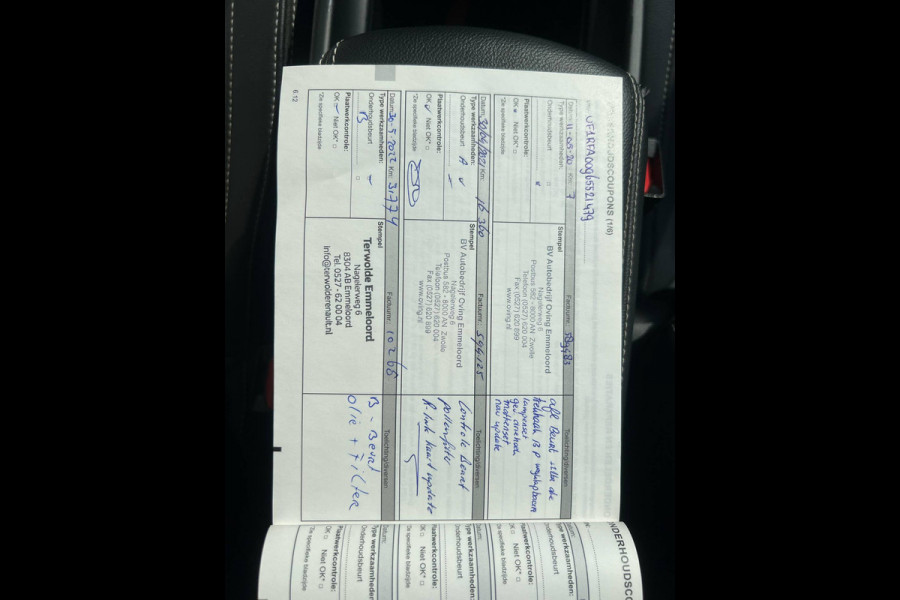 ONDERHOUDSCOUPONS (1/6)
VF1RFA00965521479
Datum: 11-09-20 Km: 7
Factuurnr:
Toelichting/diversen
Type werkzaamheden:
Onderhoudsbeurt
Plaatwerkcontrole:
OK Niet OK*
*Zie specifieke bladzijde
Stempel
BV Autobedrijf Oving Emmeloord
Nagelerweg 6
Postbus 562 - 8000 AN Zwolle
Telefoon (0527) 620 004
Fax (0527) 620 899
www.oving.nl
afl Beurt
lampenset
mattenset
nav update
Datum: 30/04/2021 Km: 16360
Factuurnr: 594125
Toelichting/diversen
Type werkzaamheden:
Onderhoudsbeurt A
Plaatwerkcontrole:
OK Niet OK*
*Zie specifieke bladzijde
Stempel
BV Autobedrijf Oving Emmeloord
Nagelerweg 6
Postbus 562 - 8000 AN Zwolle
Telefoon (0527) 620 004
Fax (0527) 620 899
www.oving.nl
Controle Beurt
pollenfilter
R. link kaart update
Datum: 30-5 2022 Km: 31774
Factuurnr: 10268
Toelichting/diversen
Type werkzaamheden:
Onderhoudsbeurt B
Plaatwerkcontrole:
OK Niet OK*
*Zie specifieke bladzijde
Stempel
Terwolde Emmeloord
Nagelerweg 6
8304 AB Emmeloord
Tel. 0527 - 62 00 04
info@terwolderenault.nl
B - Beurt
olie + Filter
6.12
ONDERHOUDSCO
Datum:
Type werkzaamheden:
Onderhoudsbeurt
Plaatwerkcontrole:
OK Niet OK*
*Zie specifieke bladzijde
Datum:
Type werkzaamheden:
Onderhoudsbeurt
Plaatwerkcontrole:
OK Niet OK*
*Zie specifieke bladzijde
Datum:
Type werkzaamheden:
Onderhoudsbeurt
Plaatwerkcontrole:
OK Niet OK*
*Zie specifieke bladzijde